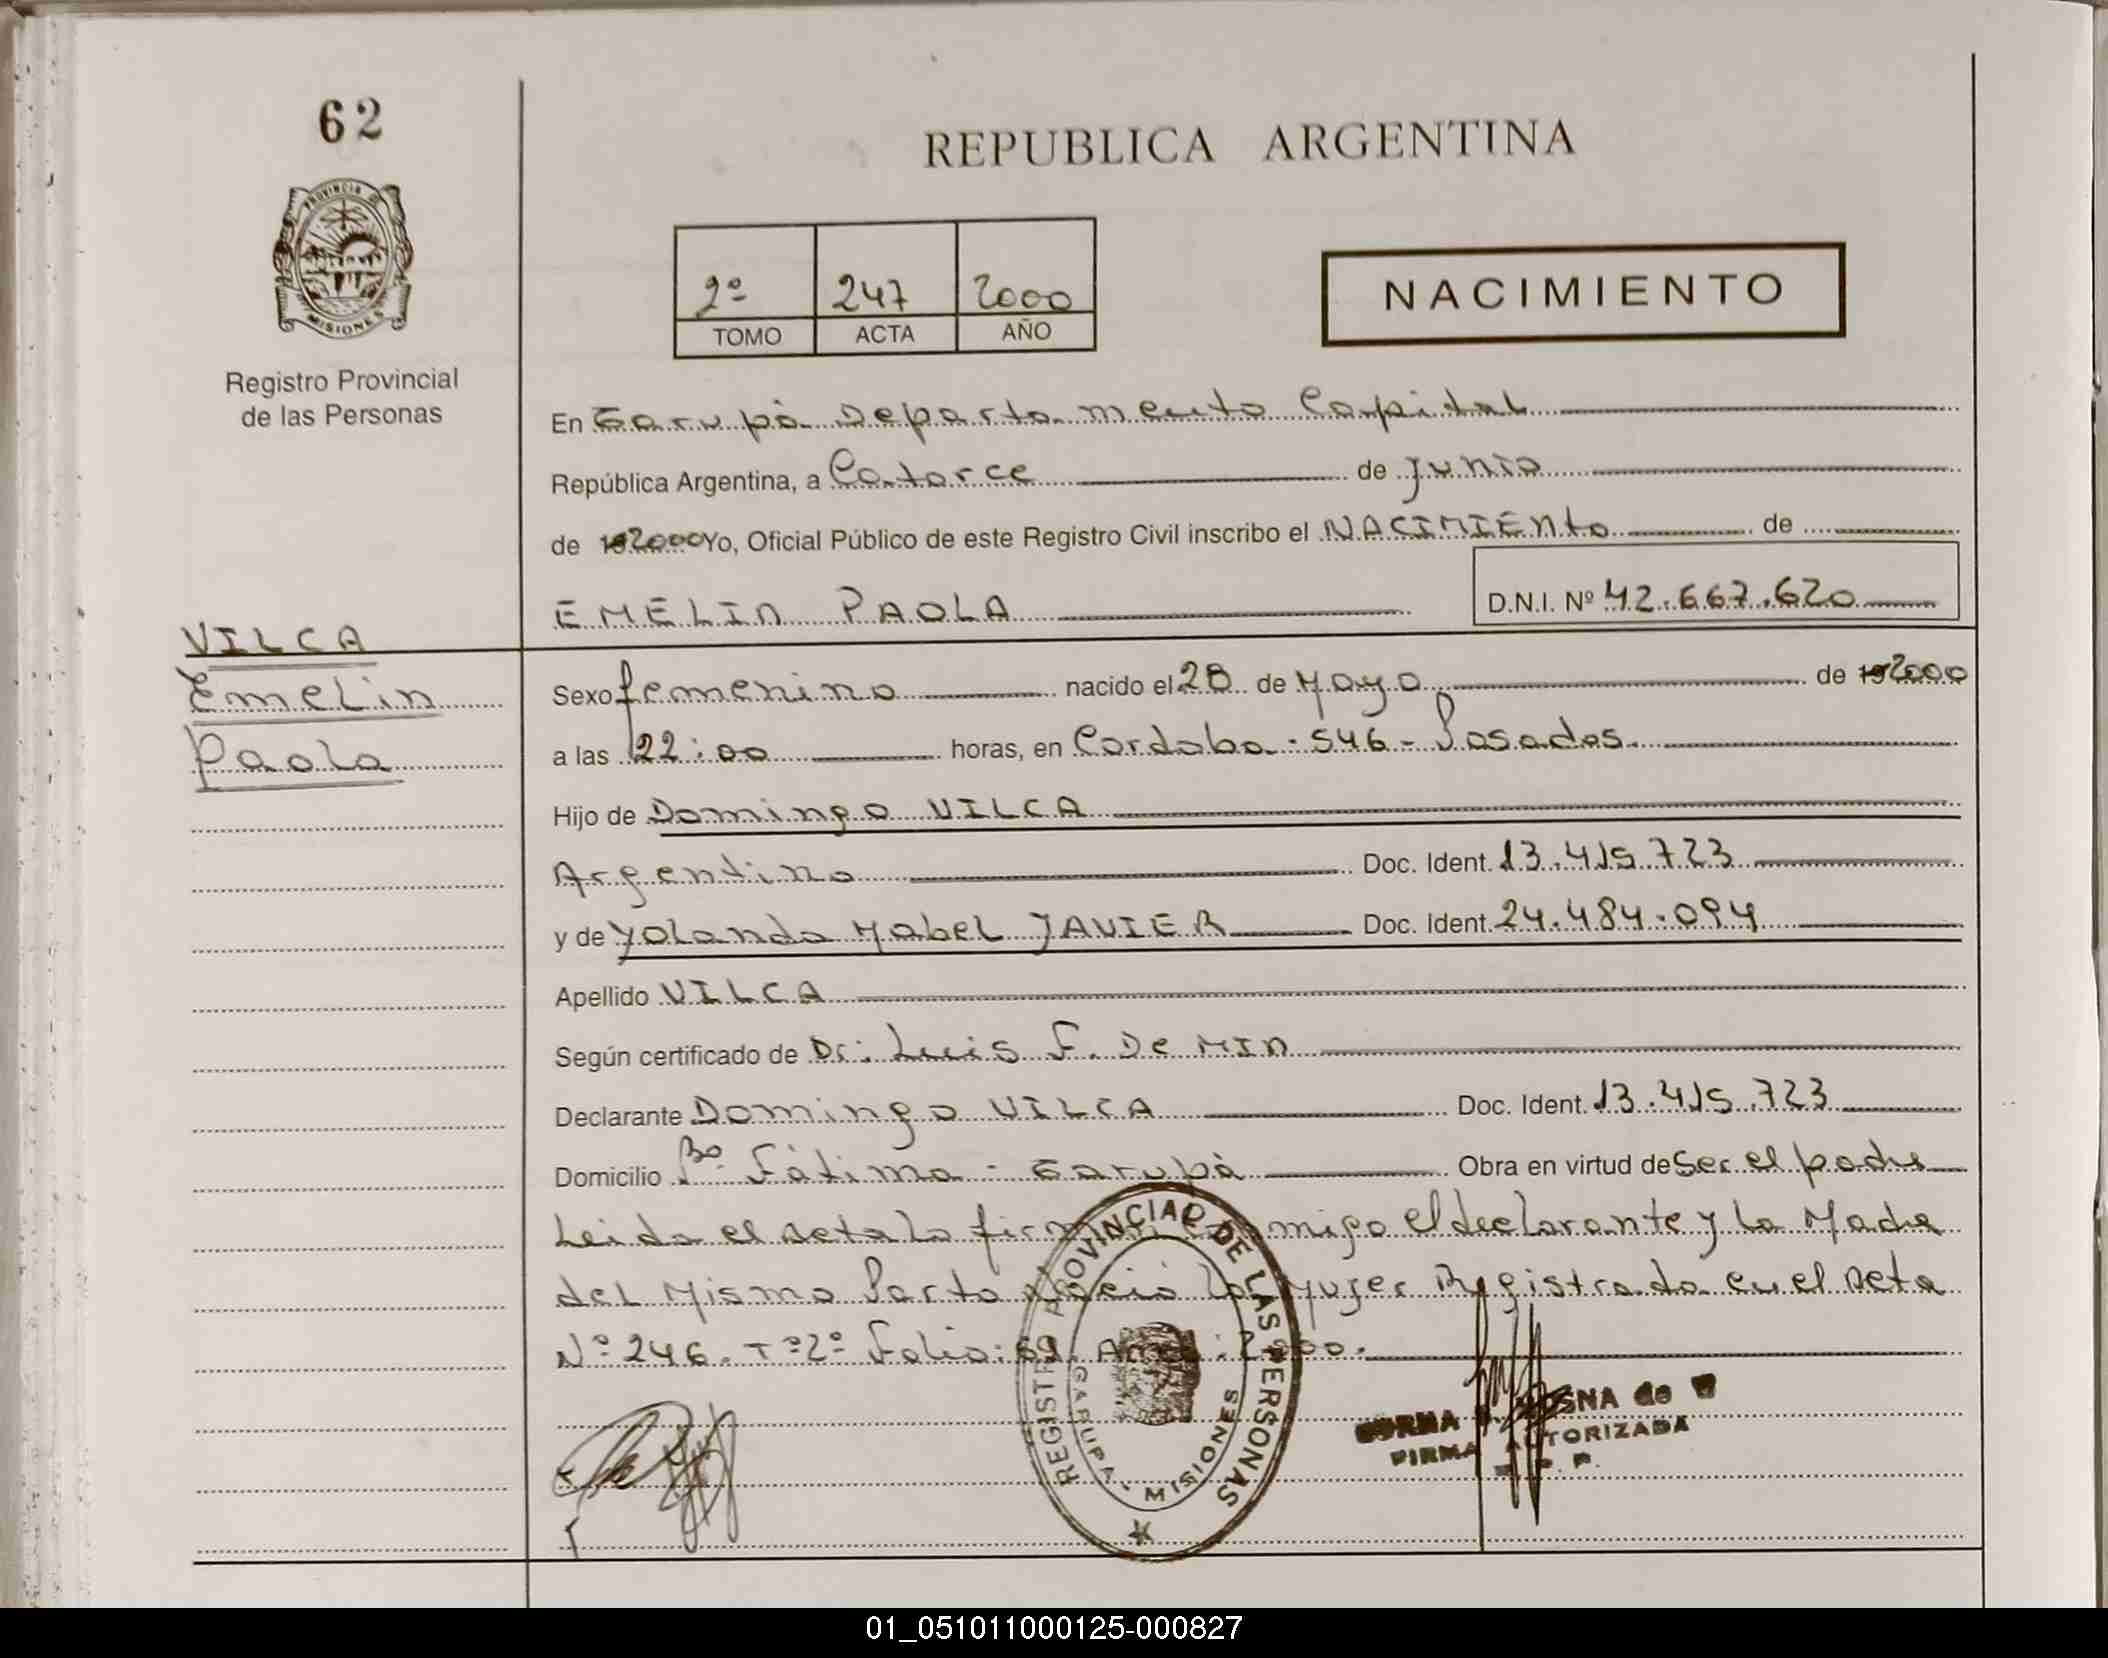 62
REPUBLICA ARGENTINA
PROVINCIA DE
MISIONES
Registro Provincial
de las Personas
2º 247 2000
TOMO ACTA AÑO
NACIMIENTO
En Garupá Departamento Capital
República Argentina, a Catorce de Junio
de 192000 Yo, Oficial Público de este Registro Civil inscribo el NACIMIENTO de
EMELIN PAOLA D.N.I. Nº 42.667.620
VILCA
Emelin
Paola
Sexo femenino nacido el 28 de Mayo de 192000
a las 22:00 horas, en Cordoba - 546 - Posadas
Hijo de Domingo VILCA
Argentino Doc. Ident. 13.415.723
y de Yolanda Mabel JAVIER Doc. Ident. 24.484.094
Apellido VILCA
Según certificado de Dr: Luis F. De MIN
Declarante Domingo VILCA Doc. Ident. 13.415.723
Domicilio Bº Fátima - Garupá Obra en virtud de Ser el padre
Leida el acta la firman conmigo el declarante y la Madre
del Mismo Parto Nació la Mujer Registrada en el Acta
Nº 246. Tº 2º Folio: 61. Año: 2000.
REGISTRO PROVINCIAL DE LAS PERSONAS
GARUPA - MISIONES
NORMA de
FIRMA AUTORIZADA
01_051011000125-000827